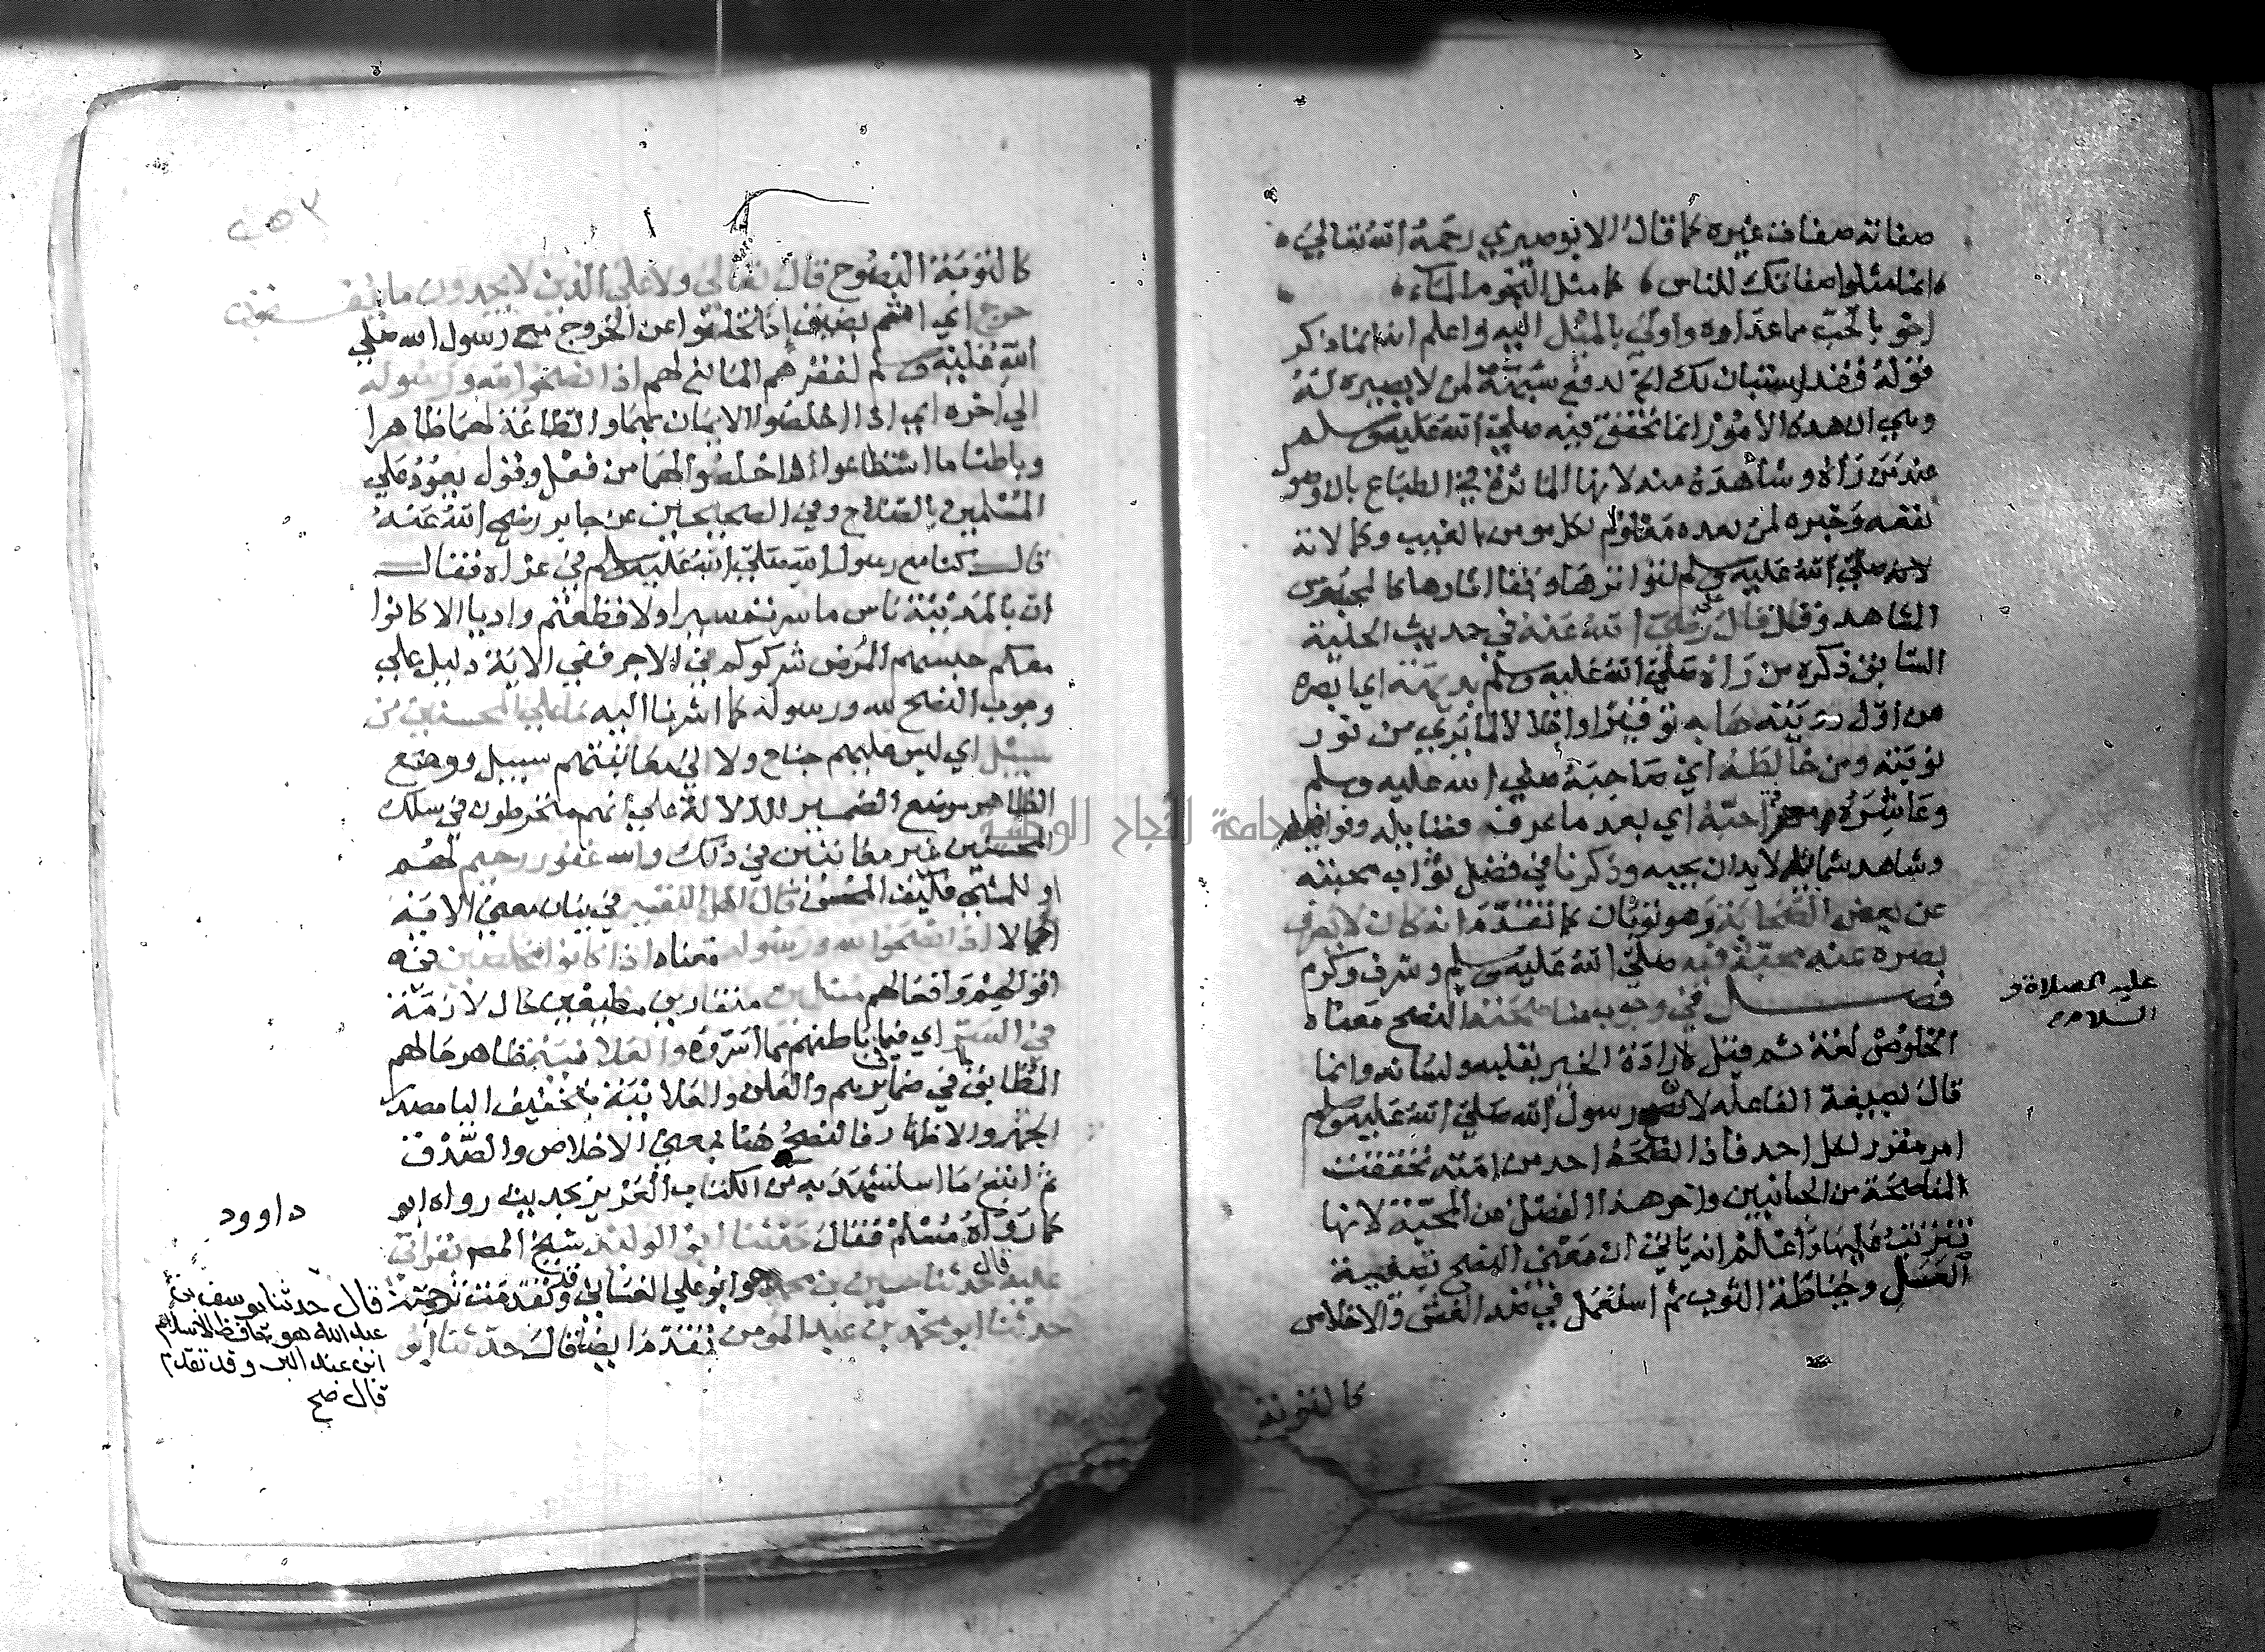 صفاته صفات غيره كما قال الابوصيري رحمه الله تعالى
انما مثلوا صفاتك للناس كما مثل النجوم الماء
احق بالحب مما عداوه واولى بالميل اليه واعلم انه انما ذكر
قوله فقد استبان لك الخ لدفع شبهة لمن لا بصيرة له
وهي ان هذه الامور انما تحقق فيه صلى الله عليه وسلم
عند من رآه وشاهده منه لانها المائدة في الطباع بالا وهو
نفعه وخيره لمن بعده معلوم لكل مومن بالغيب وكمالاته
لانه صلى الله عليه وسلم لتواترها وبقا اثارها كالمحسوس
الشاهد وقد قال علي رضي الله عنه في حديث الحلية
السابق ذكره من رآه صلى الله عليه وسلم بديهة اي ابصره
من اول رويته هابه توقيرا واجلالا لما يرى من نور
نوبته ومن خالطه اي صاحبه صلى الله عليه وسلم
وعاشره معرفة احبه اي بعد ما عرف فضايله وفواضله
وشاهد شمايله لابد ان يحبه وذكرنا في فضل ثواب محبته
عن بعض الصحابة وهو ثوبان كما تقدم انه كان لا يصرف
بصره عنه محبة فيه صلى الله عليه وسلم وشرف وكرم
فصل في وجوب مناصحته النصح معناه
عليه الصلاة و
السلام
الخلوص لغة ثم قيل لارادة الخير بقلبه ولسانه وانما
قال بصيغة الفاعله لان نصح رسول الله صلى الله عليه وسلم
امر مقرر لكل احد فاذا نصحه احد من امته تحققت
المناصحة من الجانبين واخر هذا الفصل من المحبة لانها
تترتب عليها واعلم انه ياتي ان معنى النصح تصفية
العسل وخياطة الثوب ثم استعمل في ضد الغش والاخلاص
كالتوبة
٢٥٢
كالتوبة النصوح قال تعالى ولا على الذين لا يجدون ما ينفقون
حرج اي اثم بضيق اذا تخلفوا عن الخروج مع رسول الله صلى
الله عليه وسلم لفقرهم المانع لهم اذا نصحوا لله ورسوله
الى اخره اي اذا اخلصوا الايمان بهما والطاعة لهما ظاهرا
وباطنا ما استطاعوا اذا اخلصوا لهما من فعل وقول يعود على
المسلمين بالصلاح وفي الصحيحين عن جابر رضي الله عنه
قال كنا مع رسول الله صلى الله عليه وسلم في غزاه فقال
ان بالمدينة ناس ما سرتم سيرا ولا قطعتم واديا الا كانوا
معكم حبسهم المرض شركوكم في الاجر ففي الاية دليل على
وجوب النصح لله ورسوله كما اشرنا اليه ما على المحسنين من
سبيل اي ليس عليهم جناح ولا الى معاتبتهم سبيل ووضع
الظاهر موضع الضمير للدلالة على انهم منخرطون في سلك
المحسنين غير معاتبين في ذلك والله غفور رحيم لهم
او للمسيء فكيف المحسن قال اهل التفسير في بيان معنى الاية
اجمالا اذا نصحوا لله ورسوله معناه اذا كانوا مخلصين في
اقوالهم وافعالهم مسلمين منقادين مطيعين حال لازمة
في السر اي فيما في باطنهم مما اسروه والعلانية بظاهر حالهم
المطابق لما في ضمايرهم والعلن والعلانية بتخفيف اليا مصدر
الجهر والاظهار فالنصح هنا بمعنى الاخلاص والصدق
ثم اتبع ما استشهد به من الكتاب العزيز بحديث رواه ابو
داوود
كما رواه مسلم فقال حدثنا ابو الوليد شيخ المص بقراتي
عليه قال حدثنا حسين بن محمد هو ابو علي الغساني وقد تقدمت ترجمته
قال حدثنا يوسف بن
عبد الله هو حافظ الاسلام
ابن عبد البر وقد تقدم
قال صح
حدثنا ابو محمد بن عبد المومن تقدم ايضا قال حدثنا ابو
جامعة النجاح الوطنية